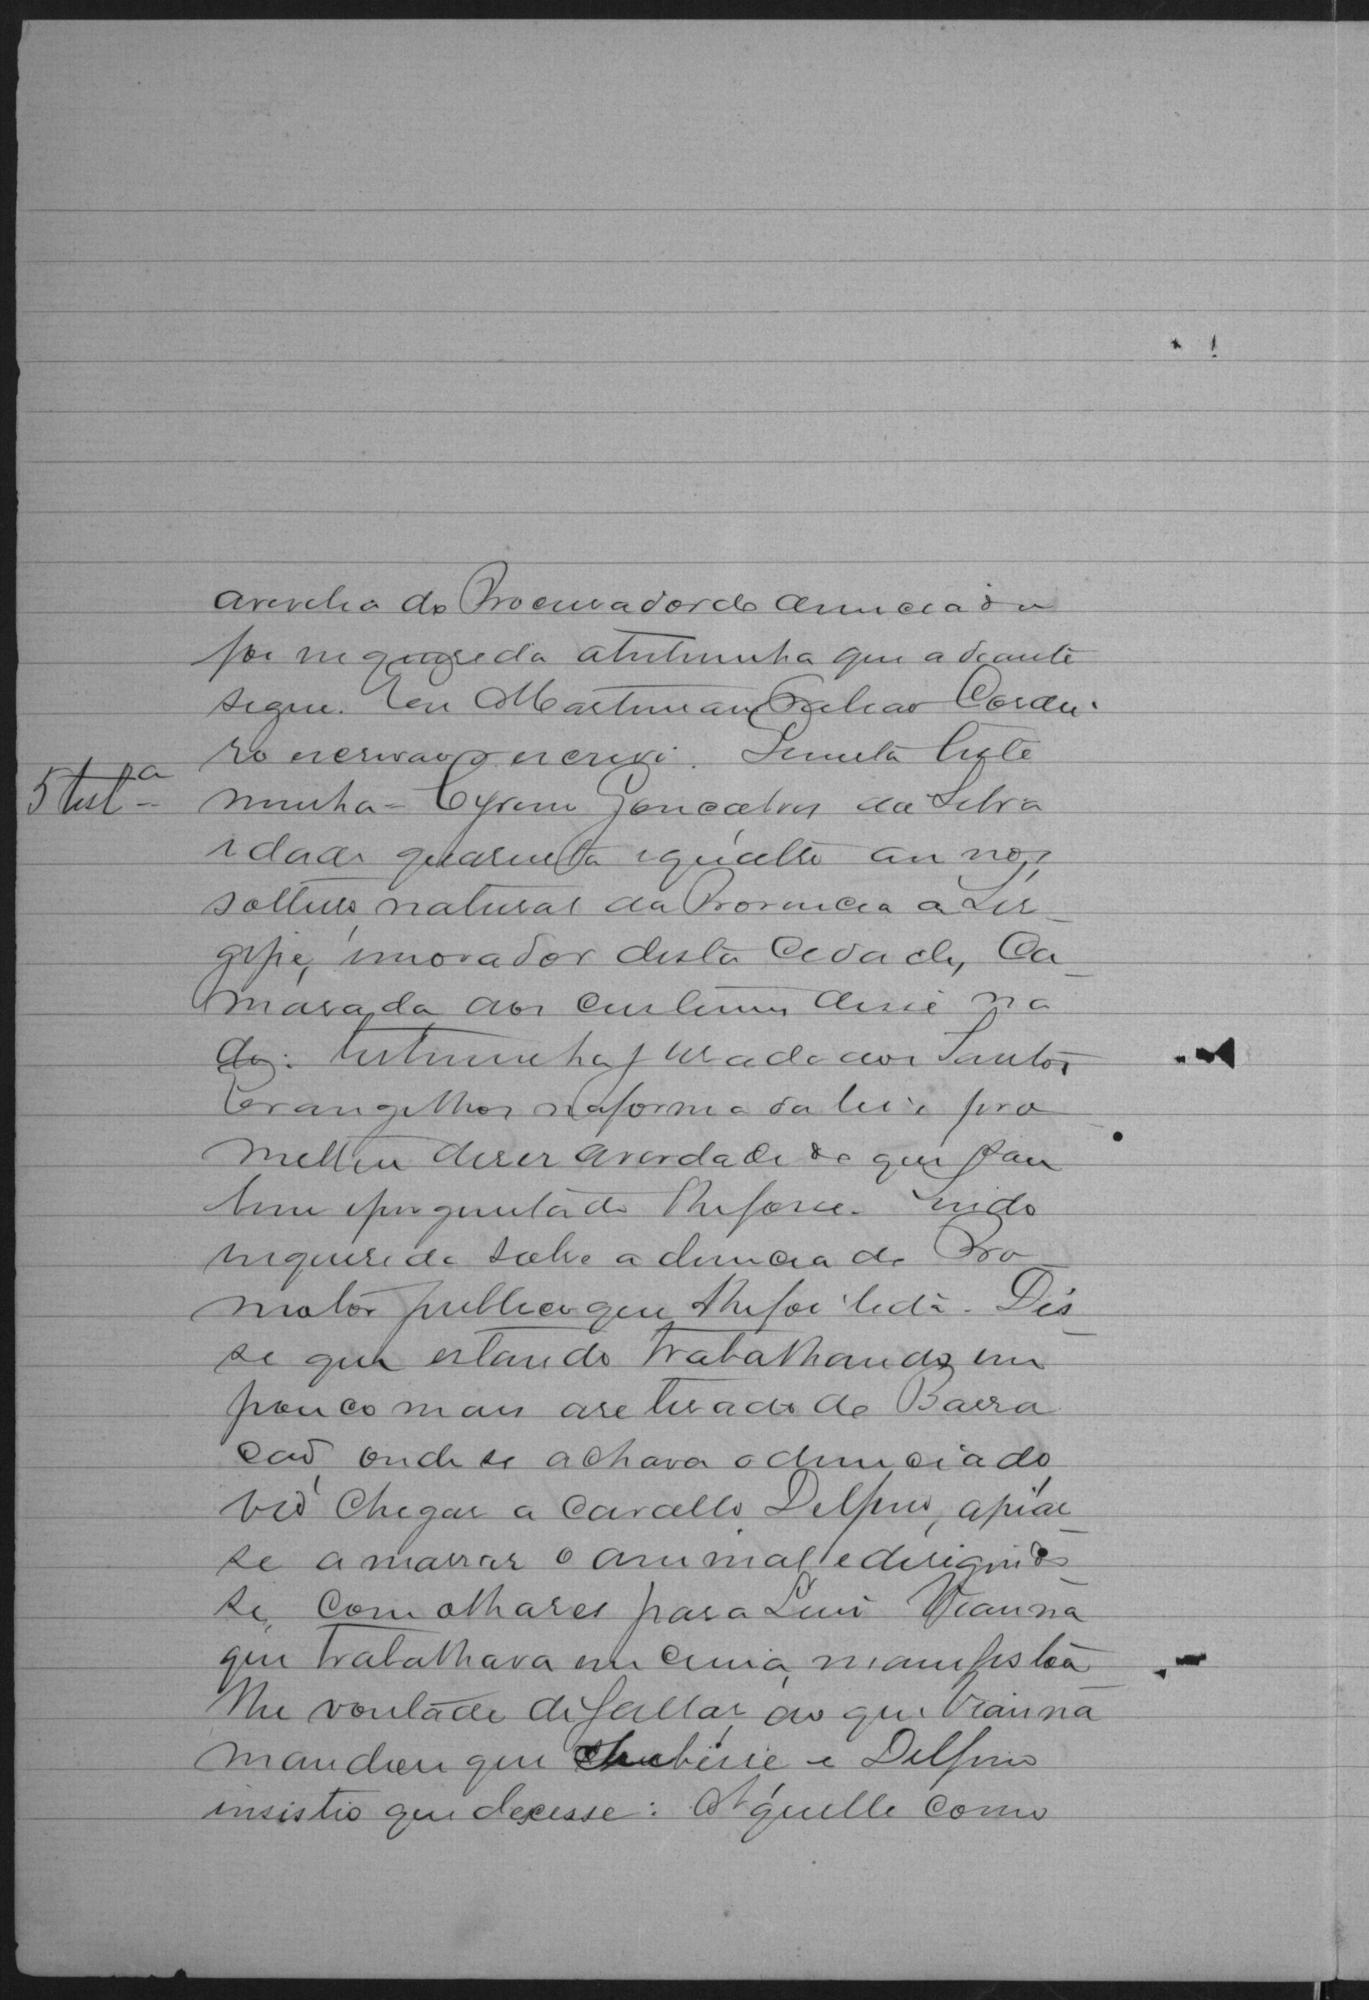 arevelia do Procurador do denunciado
foi requerida atestemunha que adeante
segue. Eu Martiniano Cordei-
ro escrivão escrevi. teste
5 test.a
munha - Cyrino Gonçalves da Silva
idade quarenta equatro annos,
solteiro, natural da Provincia de Ser-
gipe, morador desta Cidade, Ca-
marada aos custumes disse na
da: testemunha jurada aos Santos
Evangelhos naforma da lei e pro
metteu diser averdade do que sou
besse eperguntado lhefosse. Sendo
inquerida sobre a denuncia do Pro-
motor publico que lhefoi lida. Dis-
se que estando trabalhando um
pouco mais aretirado do Barra
cão, onde se achava odenunciado,
vio chegar a cavallo Delfino, apiar-
se amarrar o animal e derigindo-
se, com olhares para Luis Vianna
que trabalhava em cima, manifestou
lhe vontade defallar, ao que Vianna
mandou que subisse e Delfino
insistio que decesse: Aquelle como